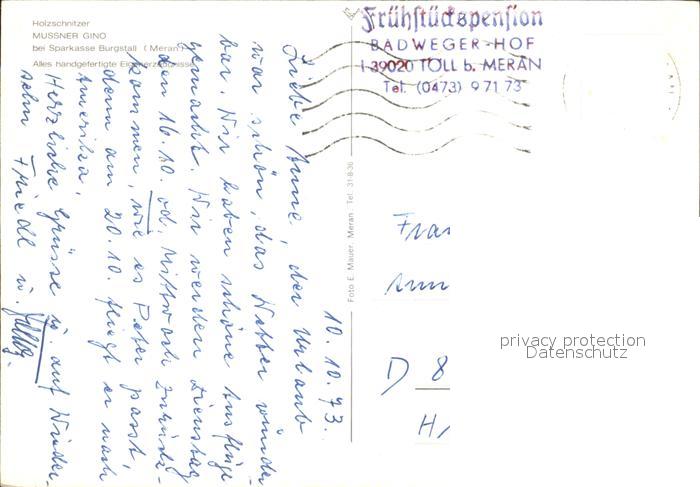 Holzschnitzer
MUSSNER GINO
bei Sparkasse Burgstall (Meran)
Alles handgefertigte
Frühstückspension
BADWEGER-HOF
I-39020 TÖLL b. MERAN
Tel. (0473) 9 71 73
10.10.93.
Liebe Anne, der Urlaub
war schön, das Wetter wunder
bar. Wir haben schöne Ausflüge
gemacht. Wir werden Dienstag
den 16.10. od. Mittwoch zurück-
kommen, wie es Peter passt,
denn am 20.10. fliegt er nach
Amerika.
Herzliche Grüsse u. auf Wieder-
sehn Friedl u.
Foto E. Mauer, Meran Tel. 31-8-36
Frau
Ann
D 8
privacy protection
Datenschutz